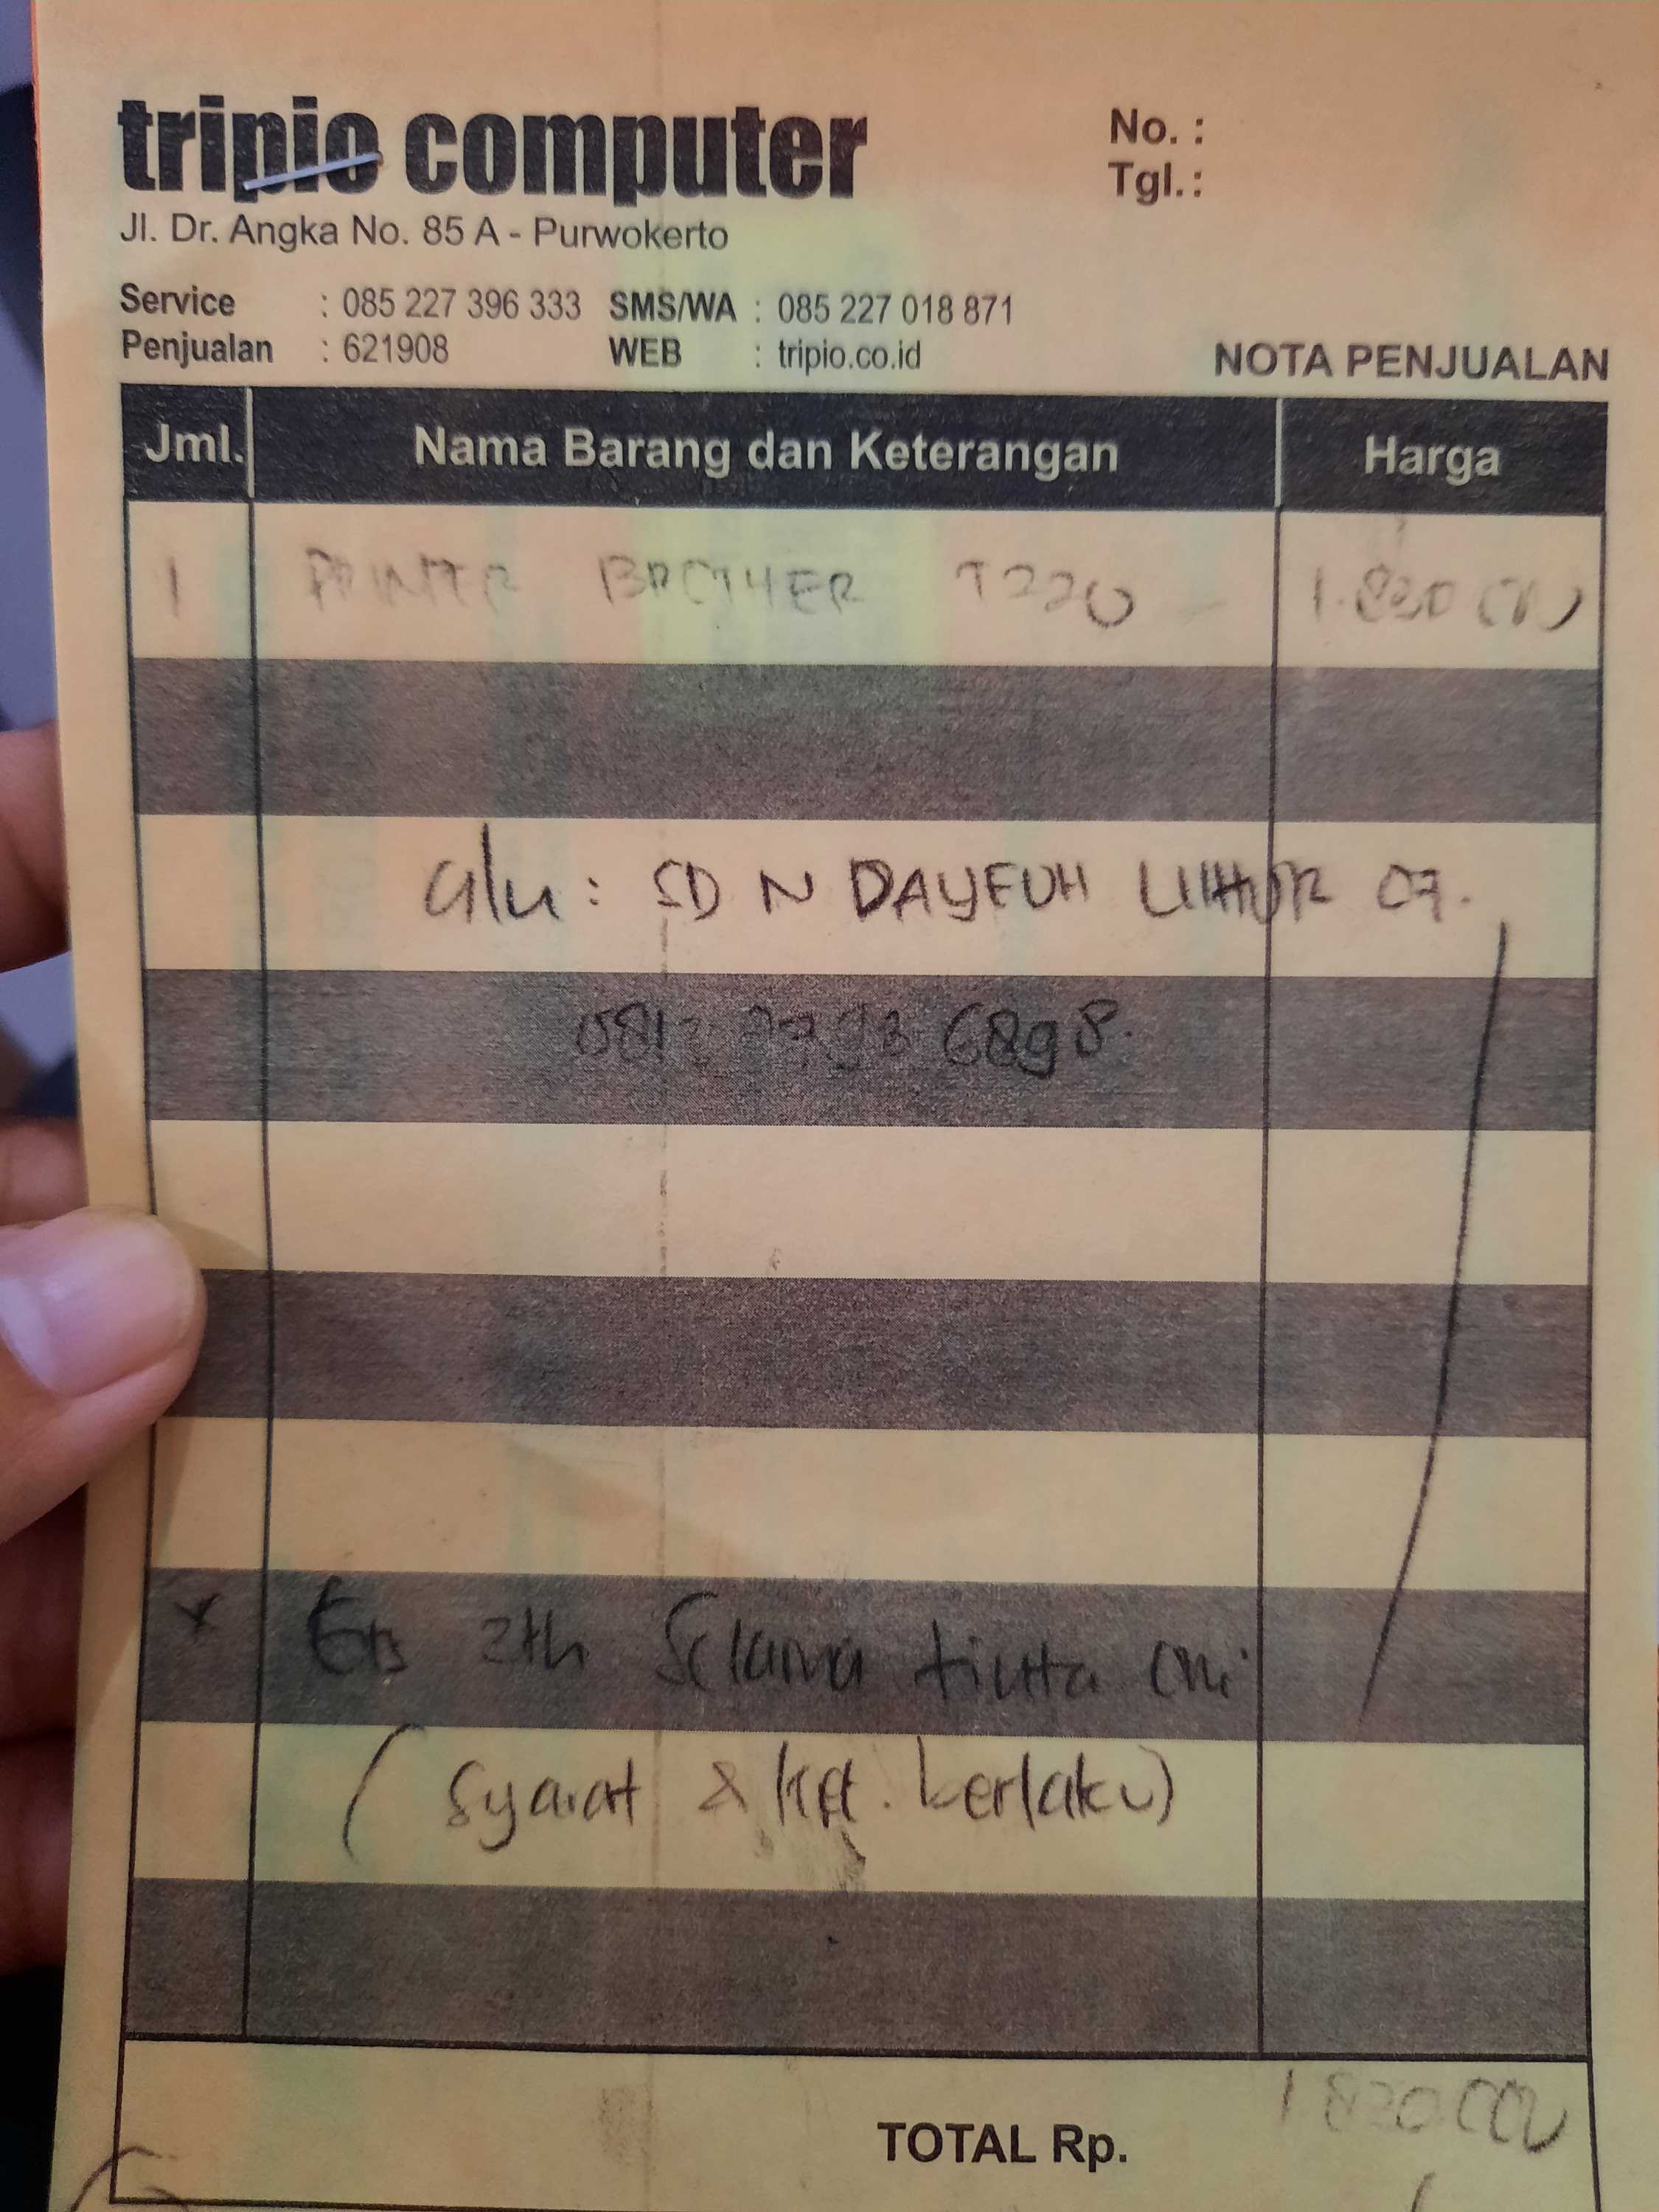 tripio computer
No. :
Tgl. :
Jl. Dr. Angka No. 85 A - Purwokerto
Service : 085 227 396 333 SMS/WA : 085 227 018 871
Penjualan : 621908 WEB : tripio.co.id
NOTA PENJUALAN
Jml. Nama Barang dan Keterangan Harga
1 PRINTER BROTHER T220
: SD N DAYEUH LUHUR 07.
6898.
2th Selama tinta ori
(Syarat & ket. berlaku)
TOTAL Rp.